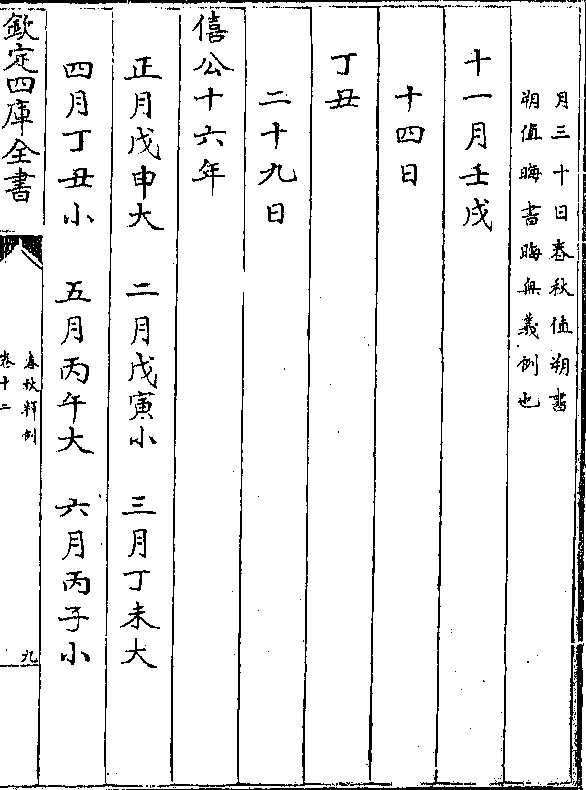 月三十日春秋值朔書
朔值晦書晦無義例也
十一月壬戌
十四日
丁丑
二十九日
僖公十六年
正月戊申大　二月戊寅小　三月丁未大
四月丁丑小　五月丙午大　六月丙子小
欽定四庫全書
春秋釋例
卷十二
九